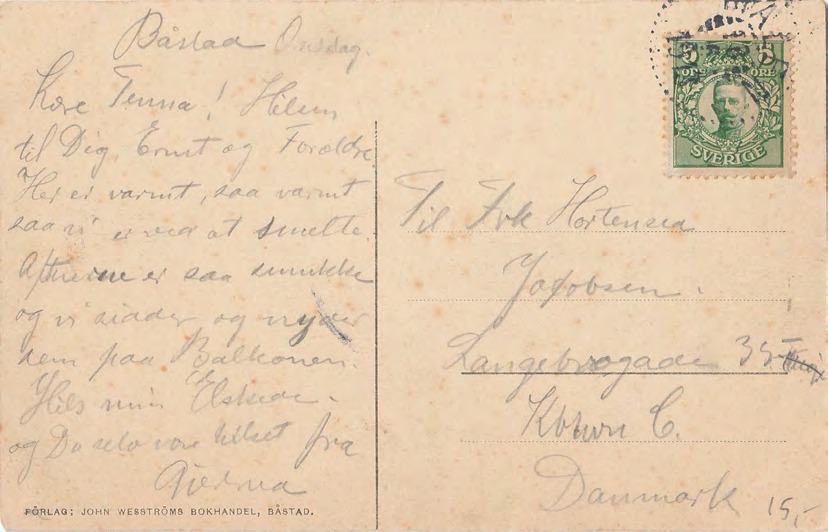 Båstad Onsdag.
Kære Tenna! Hilsen
til Dig Ernst og Forældre.
Her er varmt, saa varmt
saa vi er ved at smelte.
Aftnerne er saa smukke
og vi sidder og nyder
dem paa Balkonen.
Hils min Elskede.
og Du selv være hilset fra
FÖRLAG: JOHN WESSTRÖMS BOKHANDEL, BÅSTAD.
5 5
ÖRE ÖRE
SVERIGE
Til Frk Hortensea
Jacobsen.
Langebrogade 35
Kbhvn C.
Danmark
15,-